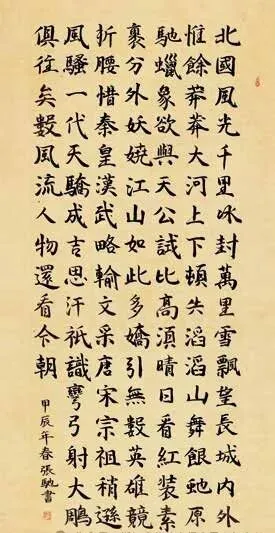 北國風光千里冰封萬里雪飄望長城內外
惟餘莽莽大河上下頓失滔滔山舞銀虵原
馳蠟象欲與天公試比高須晴日看紅裝素
裹分外妖嬈江山如此多嬌引無數英雄競
折腰惜秦皇漢武略輸文采唐宋宗祖稍遜
風騷一代天驕成吉思汗祇識彎弓射大鵰
俱往矣數風流人物還看今朝
甲辰年春張馳書